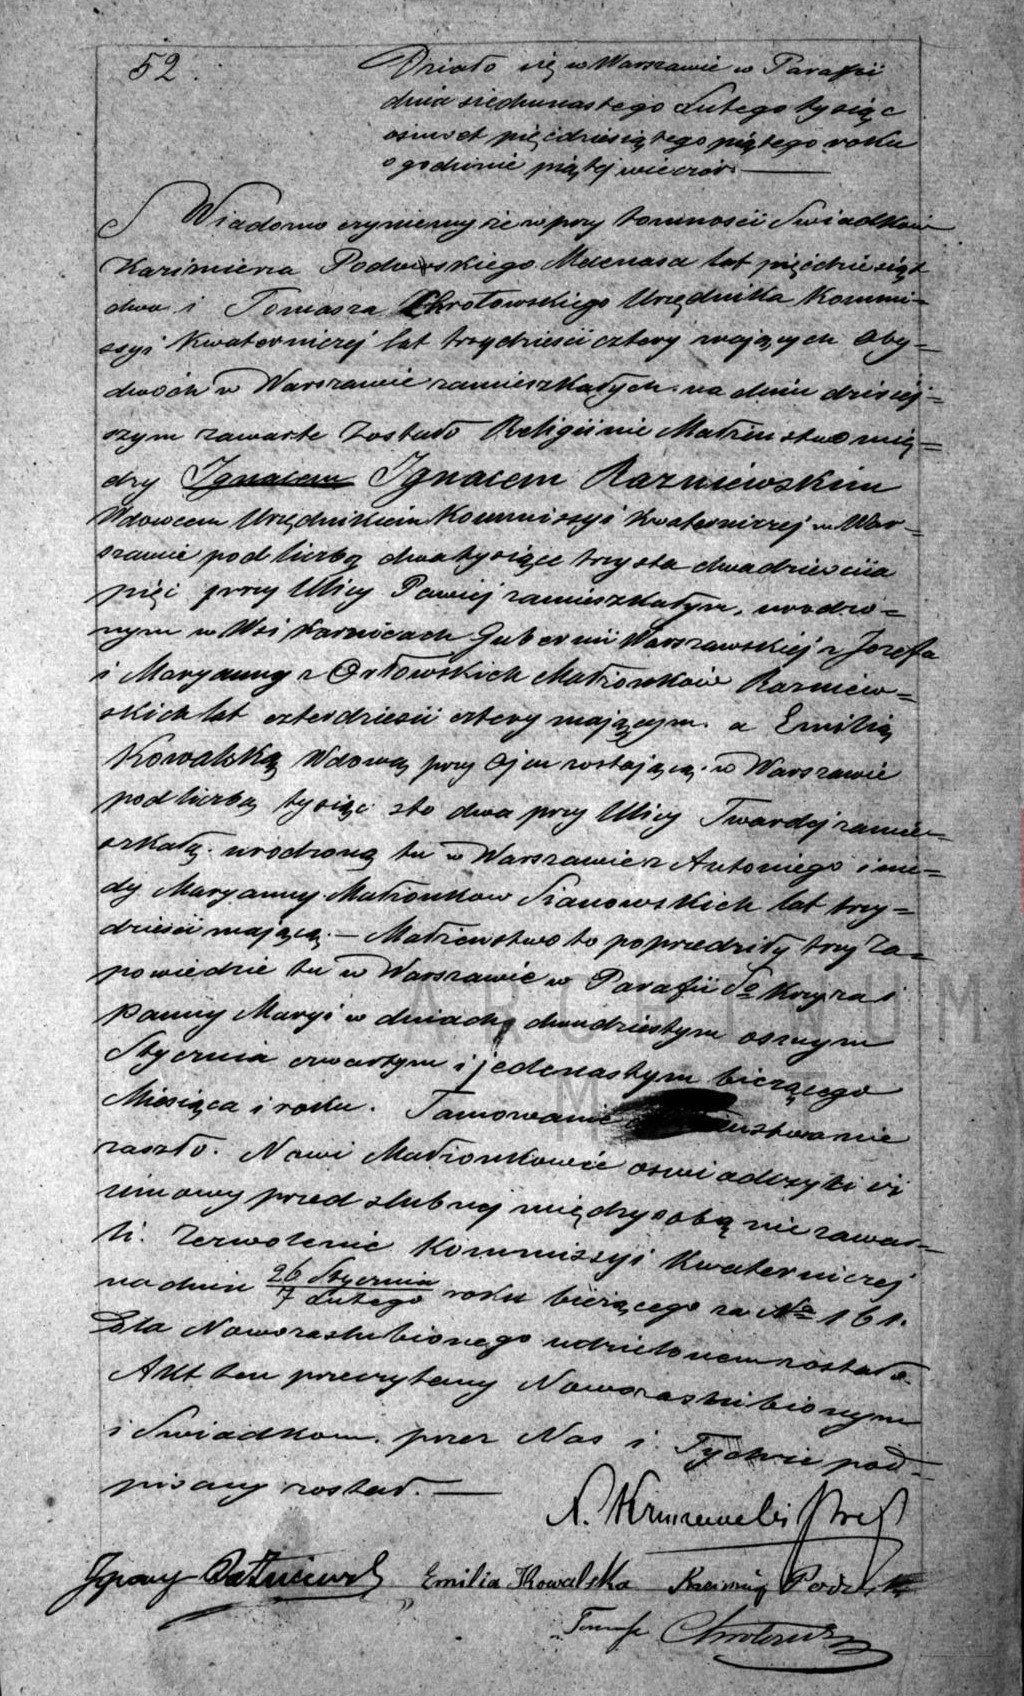 52.
Działo się w Warszawie w Parafii
dnia siedmnastego Lutego tysiąc
ośmset pięćdziesiątego piątego roku
o godzinie piątej wieczór. —
Wiadomo czyniemy że w przytomności Świadków
Kazimierza Podowskiego Mecenasa lat pięćdziesiąt
dwa i Tomasza Chrołowskiego Urzędnika Kommi=
ssyi Kwaterniczej lat trzydzieści cztery mających oby=
dwóch w Warszawie zamieszkałych. na dniu dzisiej=
szym zawarte zostało Religijnie Małżeństwo mię=
dzy Ignacem Ignacem Raźniewskim
Wdowcem Urzędnikiem Kommissyi Kwaterniczej w War=
szawie pod liczbą dwa tysiące trzysta dwadzieścia
pięć przy Ulicy Pawiej zamieszkałym, urodzo=
nym w Wsi Karnicach Gubernii Warszawskiej z Jozefa
i Maryanny z Orłowskich Małżonków Raźniew=
skich lat czterdzieści cztery mającym. a Emilią
Kowalską Wdową przy Ojcu zostającą. w Warszawie
pod liczbą tysiąc sto dwa przy Ulicy Twardej zamie=
szkałą. urodzoną tu w Warszawie z Antoniego i nie=
dy Maryanny Małżonków Sianowskich lat trzy=
dzieści mającą. — Małżeństwo to poprzedziły trzy Za=
powiedzie tu w Warszawie w Parafii So Krzyża i
Panny Maryi w dniach dwudziestym osmym
Stycznia czwartym i jedenastym bieżącego
Miesiąca i roku. Tamowanie nie
zaszło. Nowi Małżonkowie oswiadczyli iż
umowy przed slubnej między sobą nie zawar=
li. Zezwolenie Kommissyi Kwaterniczej
na dniu 26 Stycznia / 7 Lutego roku bieżącego za No 161.
Dla Nowozaslubionego udzielonem zostało.
Akt ten przeczytany Nowozaslubionym
i Swiadkom. przez Nas i Tychże pod=
pisany został. —
Ignacy Raźniewski Emilia Kowalska Kazimierz
Tomasz Chrołowski
ARCHIWUM